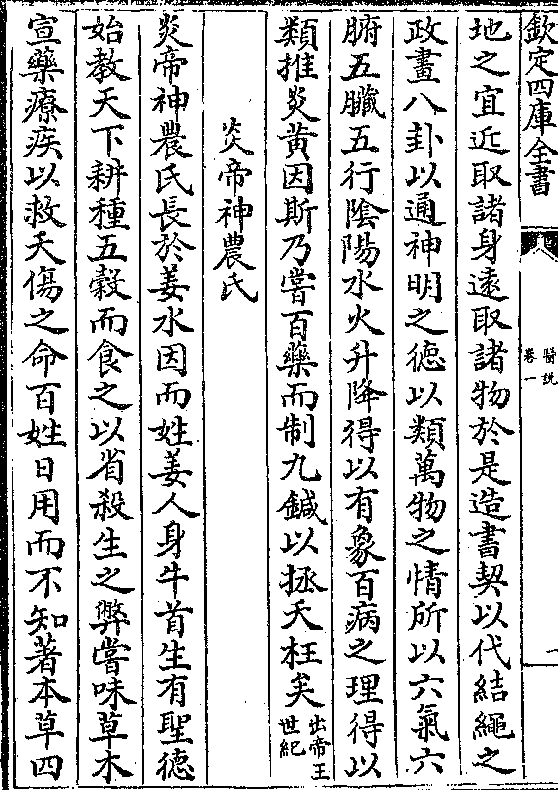 欽定四庫全書
醫說
卷一
一
地之宜近取諸身遠取諸物於是造書契以代結繩之
政畫八卦以通神明之德以類萬物之情所以六氣六
腑五臟五行陰陽水火升降得以有象百病之理得以
類推炎黃因斯乃嘗百藥而制九鍼以拯夭枉矣出帝王世紀
炎帝神農氏
炎帝神農氏長於姜水因而姓姜人身牛首生有聖德
始教天下耕種五榖而食之以省殺生之弊嘗味草木
宣藥療疾以救夭傷之命百姓日用而不知著本草四